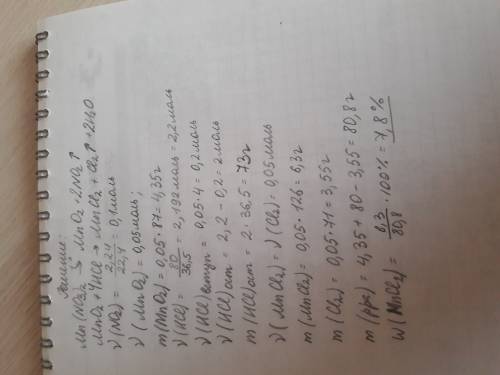 Решение:
Mn(NO3)2 →t MnO2 + 2NO2↑
MnO2 + 4HCl → MnCl2 + Cl2↑ + 2H2O
ν(NO2) = 2,24/22,4 = 0,1 моль
ν(MnO2) = 0,05 моль;
m(MnO2) = 0,05·87 = 4,35 г
ν(HCl) = 80/36,5 = 2,192 моль = 2,2 моль
ν(HCl) вступ = 0,05·4 = 0,2 моль
ν(HCl) ост = 2,2 - 0,2 = 2 моль
m(HCl) ост = 2·36,5 = 73 г
ν(MnCl2) = ν(Cl2) = 0,05 моль
m(MnCl2) = 0,05·126 = 6,3 г
m(Cl2) = 0,05·71 = 3,55 г
m(р-ра) = 4,35 + 80 - 3,55 = 80,8 г
W(MnCl2) = 6,3/80,8 · 100% = 7,8%